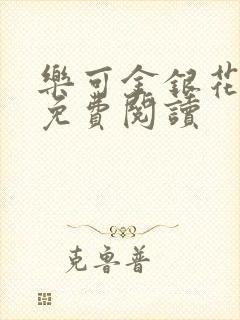 樂可金銀花
免費閱讀
克魯普